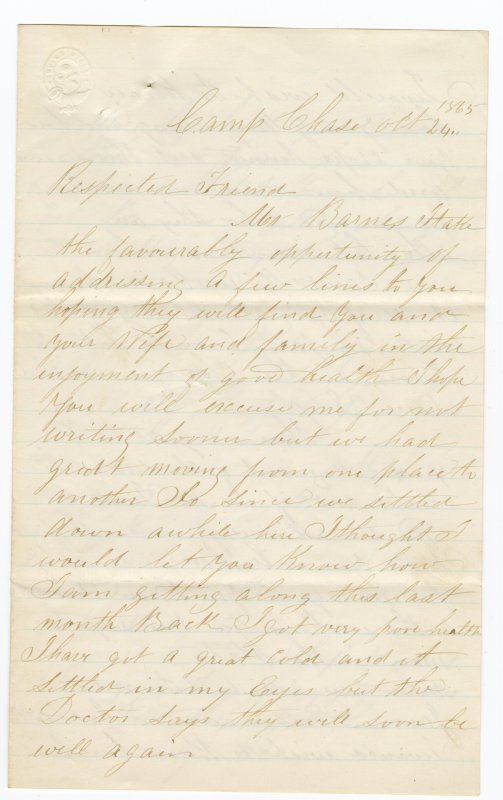 Camp Chase Oct 24.. 1865
Respected Friend
Mr Barnes I take
the favourably opportunity of
addressing A few lines to You
hoping they will find You and
Your Wife and family in the
enjoyment of good health I hope
You will excuse me for not
writing sooner but we had
great moving from one place to
another So since we sittled
down awhile here I thought I
would let You Know how
I am gitting along this last
month Back I got very pore health
I have got A great cold and it
sittled in my Eyes but the
Doctor says they will soon be
will again